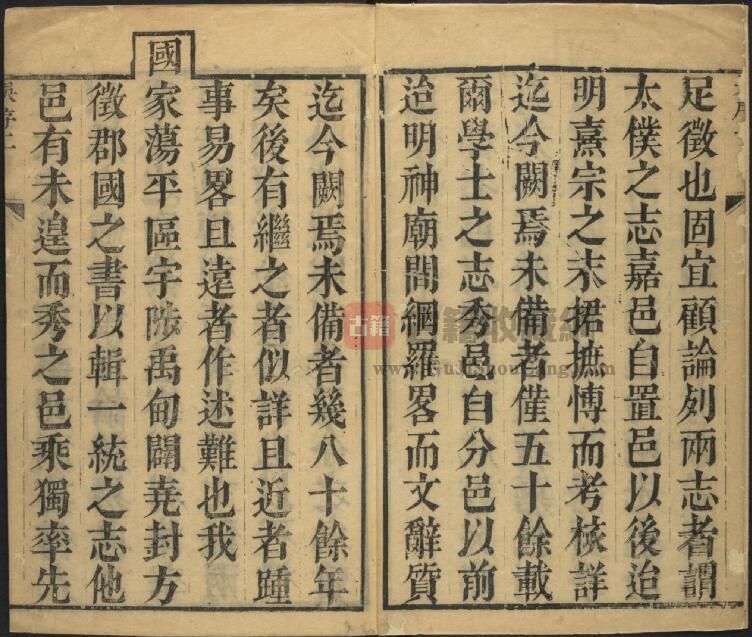 足徵也固宜顧論列兩志者謂
太僕之志嘉邑自置邑以後迨
明熹宗之末捃摭慱而考核詳
迄今闕焉未備者僅五十餘載
爾學士之志秀邑自分邑以前
迨明神廟閒網羅畧而文辭質
迄今闕焉未備者幾八十餘年
矣後有繼之者似詳且近者踵
事易畧且遠者作述難也我
國家蕩平區宇陟禹甸闢堯封方
徵郡國之書以輯一統之志他
邑有未遑而秀之邑乘獨率先
古籍